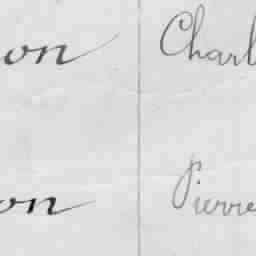 on Charl
on Pierre